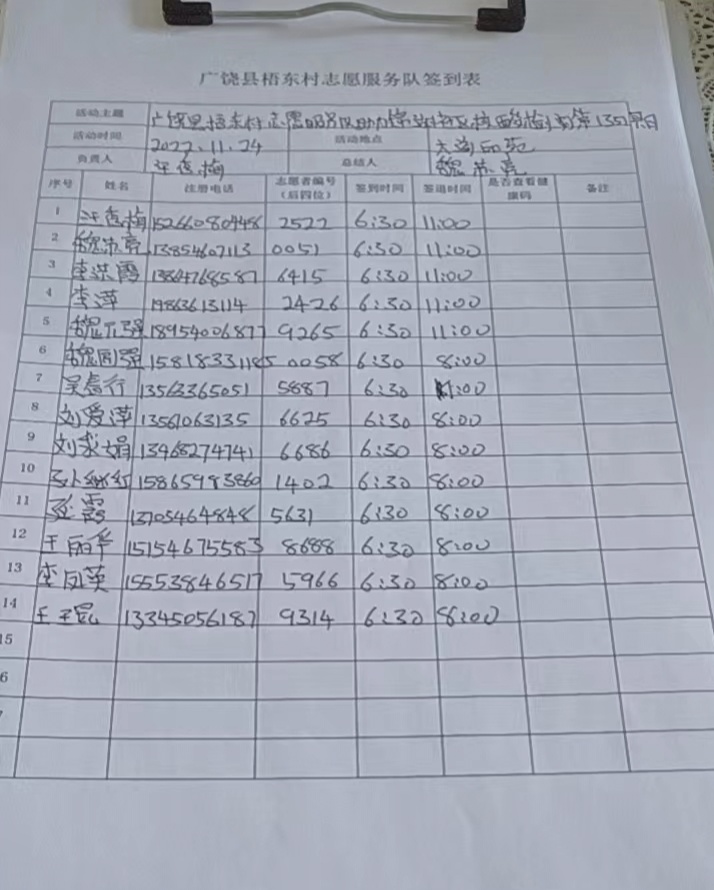 广饶县梧东村志愿服务队签到表
活动主题 广饶县梧东村志愿服务队助力 社区核酸检测第135
活动时间 2022.11.24 活动地点
负责人 汪 梅 总结人 魏 亮
序号 姓名 注册电话 志愿者编号（后四位） 签到时间 签退时间 是否查看健康码 备注
1 汪 梅 15266080448 2522 6:30 11:00
2 魏 亮 13854607113 0051 6:30 11:00
3 李洪霞 13864768587 6415 6:30 11:00
4 李萍 19863613114 2426 6:30 11:00
5 魏 强 18954006877 9265 6:30 11:00
6 魏国强 15818331185 0058 6:30 8:00
7 吴 行 13563365051 5887 6:30 11:00
8 刘爱萍 1356063135 6625 6:30 8:00
9 刘 娟 13968274741 6686 6:30 8:00
10 孙 红 15865993860 1402 6:30 8:00
11 霞 13705464848 5631 6:30 8:00
12 王丽华 15154675583 8688 6:30 8:00
13 李凤英 15553846517 5966 6:30 8:00
14 王 13345056187 9314 6:30 8:00
15
6
7